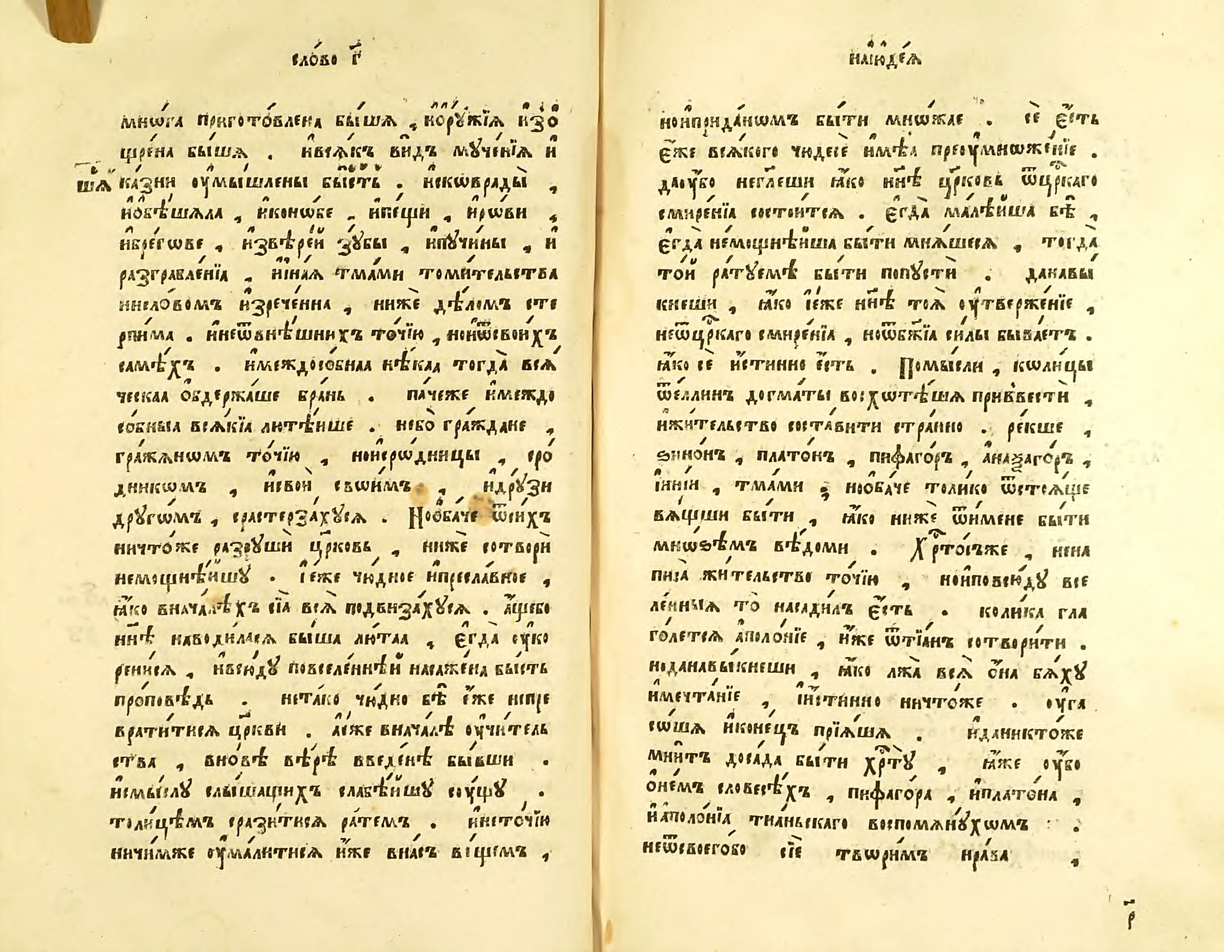 сло́во г҃
мнѡ́га приготѡ́влена бы́шѧ , и҆ѻ҆рꙋ́жїѧ и҆зѻ
щре́на бы́шѧ . и҆всѧ́къ ви́дъ мꙋче́нїѧ и҆
шѧ
ка́зни ᲂу҆мы́шлены бы́сть . и҆сковрады̀ ,
и҆ѻ҆бѣ́шѧла , и҆коно́бе , и҆пе́щи , и҆ро́ви ,
и҆бре́гѡве , и҆звѣре́й зꙋ́бы , и҆пꙋчи́ны , и҆
разграбле́нїѧ , и҆и҆на́ѧ тма́ми томи́тельства
нисло́вомъ и҆зрече́нна , нижѐ дѣ́ломъ сте
рпи́ма . и҆неѿвнѣ́шнихъ то́чїю , нои҆ѿсвои́хъ
самѣ́хъ . и҆междосо́бнаа нѣ́каа тогда̀ всѧ́
ческаа ѻ҆бдержа́ше бра́нь . па́чеже и҆междо
со́бныѧ всѧ́кїѧ лютѣ́йше . небо̀ гра́ждане ,
гра́жѧнѡмъ то́чїю , нои҆сро́дницы , сро́
дникѡмъ , и҆свои̑ свои̑мъ , и҆дрꙋ́зи
дрꙋгѡ́мъ , срастерза́хꙋсѧ . Нoѻ҆ба́че ѿси́хъ
ничто́же разрꙋшѝ цр҃ковь , нижѐ сотворѝ
немощнѣ́йшꙋ . і҆е҆́же чю́дное и҆пресла́вное ,
ꙗ҆́ко внача́лѣхъ сїѧ̀ всѧ̀ подвиза́хꙋсѧ . а҆́щебо
нн҃ѣ наводи́ласѧ бы́ша лю́таа , є҆гда̀ ᲂу҆ко
рени́сѧ , и҆всю́дꙋ повселе́ннѣй насажена̀ бы́сть
про́повѣдь . нета́ко чю́дно бѣ̀ є҆́же непре
врати́тисѧ цр҃кви . а҆є҆́же внача́лѣ ᲂу҆чи́тель
ства , вно́вѣ вѣ́рѣ введе́нѣ бы́вши .
и҆смы́слꙋ слы́шащихъ слабѣ́йшꙋ сꙋ́щꙋ .
толи́цѣмъ срази́тисѧ ра́темъ . и҆нето́чїю
ничи́мже ᲂу҆мали́тисѧ и҆́же вна́съ ве́щемъ ,
наїюде́ѧ
нои҆прида́нѡмъ бы́ти мно́жае . се̏ є҆́сть
є҆́же всѧ́кого чюдесѐ и҆мѣ́ѧ преᲂу҆множе́нїе .
даᲂу҆́бо негле́ши ꙗ҆́ко нн҃ѣ цр҃ковь ѿцр҃каго
смире́нїа состои́тсѧ . є҆гда̀ малѣ́йша бѣ̀ ,
є҆гда̀ немощнѣ́йша бы́ти мнѧ́шесѧ , тогда̀
то́й ра́тꙋемѣ бы́ти попꙋстѝ . данавы́
кнеши , ꙗ҆́ко і҆е҆́же нн҃ѣ тоѧ̀ ᲂу҆твержде́нїе ,
неѿцр҃каго смире́нїа , ноѿбж҃їа си́лы быва́етъ .
ꙗ҆́ко се̏ и҆́стинно є҆́сть . Помы́сли , коли́цы
ѿе́ллинъ догма́ты восхотѣ́шѧ приввестѝ ,
и҆жи́тельство соста́вити стра́нно . ре́кше ,
ѕино́нъ , плато́нъ , пифаго́ръ , а҆наѯаго́ръ ,
і҆и҆ні́и , тма́ми ; нообаче толи́ко ѿстоѧ́ще
вѧ́щши бы́ти , ꙗ҆́ко нижѐ ѿи́мене бы́ти
мно́ѕѣмъ вѣ́доми . Хр҃то́съже , нена
писа̀ жи́тельство то́чїю , нои҆повсю́дꙋ все
ле́нныѧ то̀ насади́лъ є҆́сть . коли́ка гла
го́летсѧ а҆поло́нїе , и҆́же ѿтїа́нъ сотвори́ти .
ноданавы́кнеши , ꙗ҆́ко лжа̀ всѧ̀ ѻ҆на̀ бѧ́хꙋ
и҆мечта́нїе , і҆и҆́стинно ничто́же . ᲂу҆га
со́шѧ и҆коне́цъ прїѧ́шѧ . и҆даникто́же
мни́тъ доса́да бы́ти хр҃тꙋ̀ , ꙗ҆́же ᲂу҆́бо
ѻ҆не́мъ словесѣ́хъ , пифаго́ра , и҆плато́на ,
и҆а҆поло́нїа тиа́ньскаго воспомѧнꙋ́хомъ .
неѿсвоего́бо сїѐ твори́мъ нра́ва ,
р҃